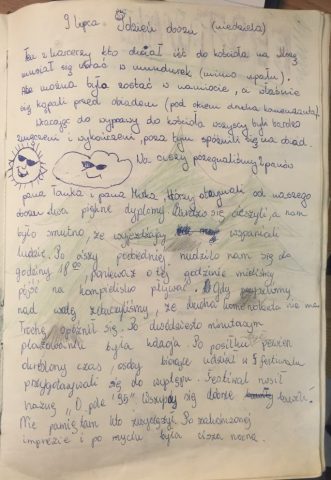 9 lipca. 9 dzień obozu (niedziela)
Ten z harcerzy kto chciał iść do kościoła na Mszę
musiał się ubrać w mundurek (mimo upału).
Ale można było zostać w namiocie, a właśnie
się kąpali przed obiadem (pod okiem druha komendanta)
Wracając do wyprawy do kościoła wszyscy byli bardzo
zmęczeni i wykończeni, poza tym spóźnili się na obiad.
Na ciszy pożegnaliśmy 2 panów
pana Tomka i pana Mirka, którzy otrzymali od naszego
obozu dwa piękne dyplomy. Bardzo się cieszyli, a nam
było smutno, że wyjeżdżają wspaniali
ludzie. Po ciszy poobiedniej nudziło nam się do
godziny 18 00, ponieważ o tej godzinie mieliśmy
pójść na kąpielisko pływać. Gdy przyszliśmy
nad wodę zobaczyliśmy, że druha komendanta nie ma
Trochę spóźnił się. Po dwudziesto minutowym
plażowaniu była kolacja. Po posiłku pewien
określony czas, osoby biorące udział w festiwalu
przygotowywali się do występu. Festiwal nosił
nazwę "O pole '95" Wszyscy się dobrze bawili!
Nie pamiętam kto zwyciężył. Po zakończonej
imprezie i po myciu była cisza nocna.